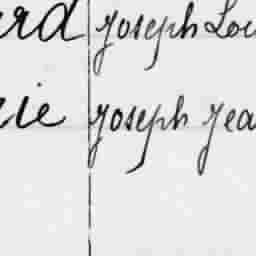 ard Joseph Lou
rie Joseph Jea